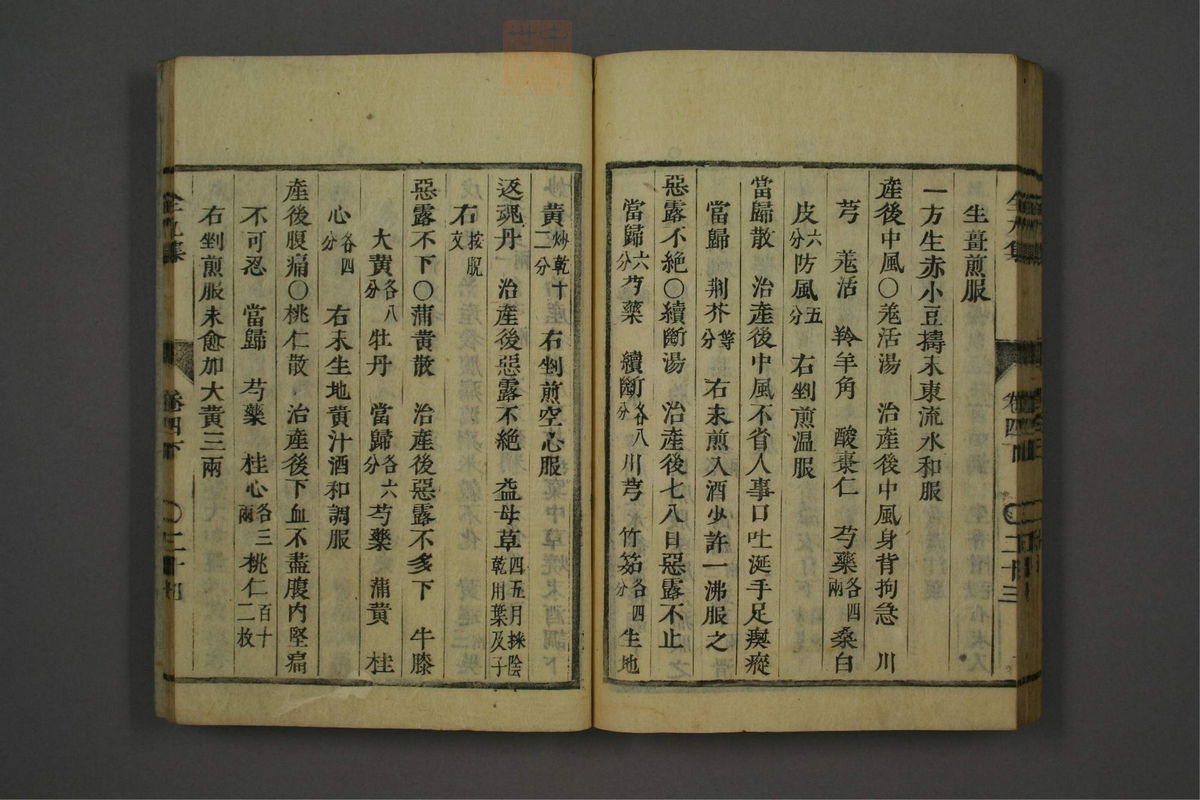 生薑煎服
一方生赤小豆擣末東流水和服
產後中風〇羗活湯　治產後中風身背拘急　川
芎　羗活　羚羊角　酸棗仁　芍藥各四兩　桑白
皮六分　防風五分　右剉煎温服
當歸散　治產後中風不省人事口吐涎手足瘈瘲
當歸　荆芥等分　右末煎入酒少許一沸服之
惡露不絕〇續斷湯　治產後七八日惡露不止
當歸六分　芍藥　續斷各八分　川芎　竹筎各四分　生地
黃炒乾十二分　右剉煎空心服
返魂丹　治產後惡露不絕　益母草四五月採陰乾用葉及子
右按脫文
惡露不下〇蒲黄散　治產後惡露不多下　牛膝
大黄各八分　牡丹　當歸各六分　芍藥　蒲黄　桂
心各四分　右末生地黄汁酒和調服
產後腹痛〇桃仁散　治產後下血不盡腹内堅痛
不可忍　當歸　芍藥　桂心各三兩　桃仁百十二枚
右剉煎服未愈加大黄三兩
卷四下
二十四